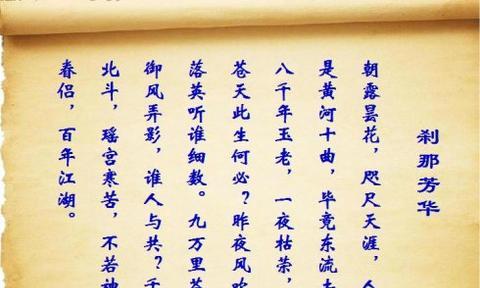 刹那芳华
朝露昙花，咫尺天涯，人
是黄河十曲，毕竟东流去
八千年玉老，一夜枯荣，
苍天此生何必？昨夜风吹
落英听谁细数。九万里苍
御风弄影，谁人与共？千
北斗，瑶宫寒苦，不若神
眷侣，百年江湖。